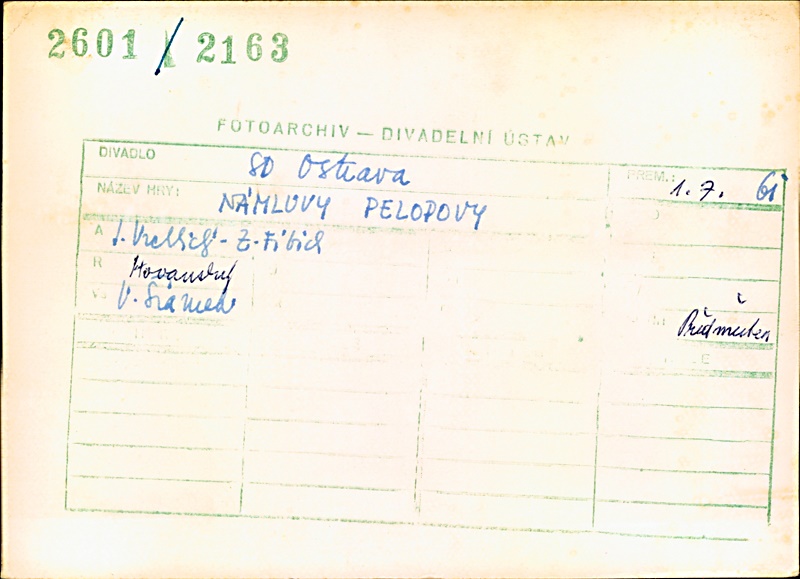 2601 / 2163
FOTOARCHIV — DIVADELNÍ ÚSTAV
DIVADLO SD Ostrava PREM.: 1. 7. 61
NÁZEV HRY: NÁMLUVY PELOPOVY
A J. Vrchlický - Z. Fibich
R Hovanský
V. Šrámek